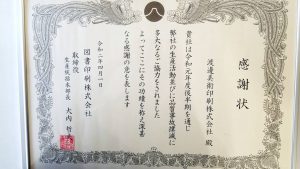 感謝状
渡邊美術印刷株式会社 殿
貴社は令和元年度後半期を通じ
弊社の生産活動並びに品質事故撲滅に
多大なるご協力をされました
よってここにその功績を称え深甚
なる感謝の意を表します
令和二年四月一日
図書印刷株式会社
取締役
生産統括本部長 大内 哲